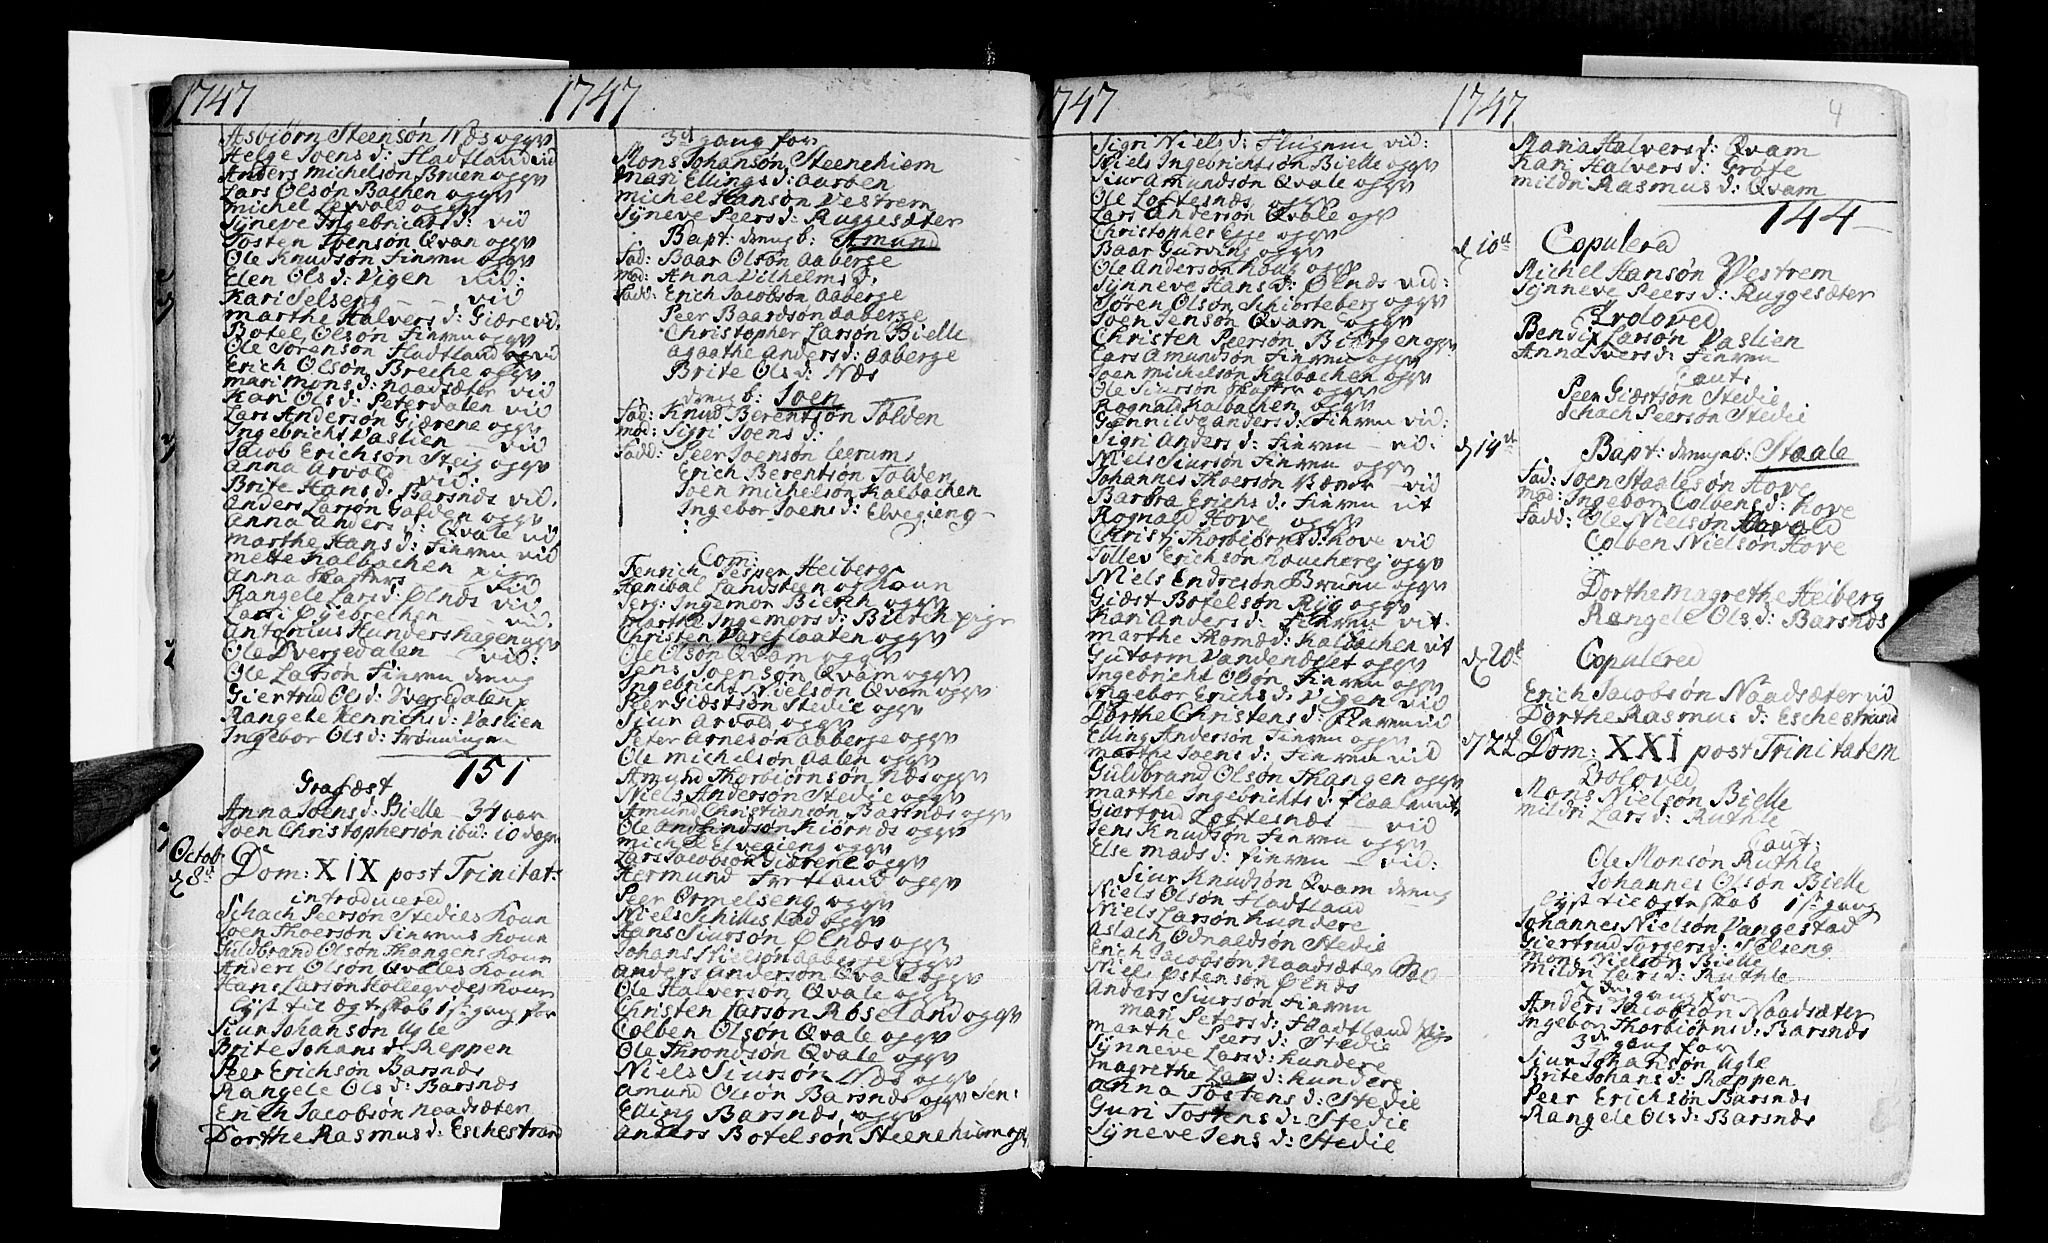 1747
Asbiørn Steensøn Næs og qv
Helge Joens d: Fladtland vid
Anders Michelsøn Bruen og qv
Lars Olsøn Bachen og qv
Michel Refvale og qv
Synneve Ingebricts d: vid
Tosten Joensøn Qvam og qv
Ole Knudsøn Finnen og qv
Elen Ols d: Vigen vid:
Kari Selseng - - vid
Marthe Halvers d: Giære vid.
Botel Olsøn Finnen og qv
Ole Sørensøn Fladtland og vid
Erich Olsøn Breche og qv
Mari Mons d: Naadsæter vid
Kari Ols d: Peterdalen vid
Lars Andersøn Giærene og qv
Ingebricht Vaslien - vid
Jacob Erichsøn Steig og qv
Anna Arvold vid:
Brite Hans d: Barsnæs vid.
Anders Larsøn Galden og qv
Anna Anders d: Qvale vid
Marthe Hans d: Finnen vid
Mette Kalbachen
Anna Skasters
Rangele Lars d: Ølnæs vid
Kari Øyebrechen - vid.
Antonius Hundershagen og qv
Ole Dvergedalen - vid:
Ole Larsøn Finnen dreng
Giertrud Ols d: Dvergedalen
Rangele Henrichs d: Vaslien
Ingebor Ols d: Trønningen
151
Grafæst
Anna Joens d: Bielle - 34 aar
Joen Christophersøn ibid: 10 dage
Octob:
d 8d
Dom: XIX post Trinitat:
introducered
Schach Peersøn Stedies Konn
Joen Thoersøn Finnens Konn
Guldbrand Olsøn Thangens Konn
Anders Olsøn Qvales Konn
Hans Larsøn Konn
lyst til ægteskab 1ste gang for
Siur Johansøn Ugle
Brite Johans d: Reppen
Peer Erichsøn Barsnæs
Rangele Ols d: Barsnæs
Erich Jacobsøn Naadsæter
Dorthe Rasmus d: Eschestrand
1747
3d gang for
Mons Johansøn Steenehiem
Mari Ellings d: Aaroen
Michel Hansøn Vestrem
Synneve Peers d: Ruggesæter
Bapt: dreng b: Amund
Fad: Baar Olsøn Aaberge
Mod: Anna Vilhelms d:
Fadd: Erich Jacobsøn Aaberge
Peer Baardsøn Aaberge
Christopher Larsøn Bielle
Agathe Anders d: Aaberge
Brite Ols d: Næs
dreng b: Joen
Fad: Knud Berentsøn Tolden
Mod: Sigri Joens d:
Fadd: Peer Joensøn Leerum
Erich Berentsøn Tolden
Joen Michelsøn Kalbachen
Ingebor Joens d: Elvegieng
Com:
Henrich Jesper Heiberg
Hanibal Landsteen og Konn
Serg: Ingemor Bierch og qv
Marthe Ingemors d: Bierch pige
Christen Vareflaaten og qv
Ole Olsøn Qvam og qv
Jens Joensøn Qvam og qv
Ingebricht Nielsøn Qvam og qv
Peer Giæstsøn Stedie og qv
Siur Arvold og qv
Peter Arnesøn Aaberge og qv
Ole Michelsøn Dalen og qv
Amund Thorbiørnsøn Næs og qv
Niels Andersøn Stedie og qv
Amund Christiansøn Barsnæs og qv
Ole Kiørnæs og qv
Michel Elvegieng og qv
Lars Jacobsøn Giærene og qv
Hermund Fortland og qv
Peer Ormelseng og qv
Niels Schillestad og qv
Hans Siursøn Ølnæs og qv
Johans Nielsøn Aaberge og qv
Anders Andersøn Qvale og qv
Ole Halversøn Qvale og qv
Christen Larsøn Røseland og qv
Colben Olsøn Qvale og qv
Ole Throndsøn Qvale og qv
Niels Siursøn Næs og qv
Amund Olsøn Barsnæs og qv Sen:
Elling Barsnæs og qv
Anders Botelsøn Steenehiem og qv
1747
Sigri Niels d: Flugem vid:
Niels Ingebrichtsøn Bielle og qv
Siur Amundsøn Qvale og qv
Ole Loftesnæs og qv
Lars Andersøn Qvale og qv
Christopher Egge og qv
Baar Gurving og qv
Ole Andersøn Houg og qv
Synneve Hans d: Ølnæs vid:
Søren Olsøn Schiorteberg og qv
Joen Jensøn Qvam og qv
Christen Peersøn Biørgen og qv
Lars Amundsøn Finnen og qv
Joen Michelsøn Kalbachen og qv
Ole Siursøn Skaster og qv
Rognald Kalbachen og qv
Gunnilde Anders d: Finnen vid
Sigri Anders d: Finnen - vid:
Niels Siursøn Finnen og qv
Johannes Thoersøn - vid
Barbra Erichs d: Finnen vit
Rognald Hove og qv
Thorbiørns d: Hove vid
Tollev Erichsøn og qv
Niels Endresøn Bruun og qv
Giæst Botelsøn Ryg og qv
Kari Anders d: Finnen vit.
Marthe Thomæ d: Kalbachen vit
Gutorm Vandendelet og qv
Ingebricht Olsøn Finnen og qv
Ingebor Erichs d: Vigen vid
Dorthe Christens d: Finnen vid
Elling Andersøn Finnen og qv
Marthe Joens d: Finnen vid
Guldbrand Olsøn Thangen og qv
Marthe Ingebrichts d: vit:
Giertrud Loftesnæs - vid
Jens Knudsøn Finnen og qv
Else Mads d: Finnen - vid:
Siur Knudsøn Qvam dreng
Niels Olsøn Fladtland
Niels Larsøn Hundere
Aslach Odnaldsøn Stedie
Erich Jacobsøn Naadsæter
Niels Østensøn Ølnæs
Anders Siursøn Finnen
Mari Peters d: Fladtland pige
Marthe Peers d: Stedie
Synneve Lars d: Hundere
Magrethe Lars d: Hundere
Anna Tostens d: Stedie
Guri Tostens d: Stedie
Synneve Jens d: Stedie
1747
4
Maria Halvers d: Qvam
Kari Halvers d: Grote
Mildri Rasmus d: Qvam
144
d 10d
Copulered
Michel Hansøn Vestrem
Synneve Peers d: Ruggesæter
Troloved
Bendix Larsøn Vaslien
Anna Ivers d: Finnen
Caut:
Peer Giæstsøn Stedie
Schach Peersøn Stedie
d 14d
Bapt: dreng b: Staale
Fad: Joen Staalesøn Hove
Mod: Ingebor Colbens d: Hove
Fadd: Ole Nielsøn Arvold
Colben Nielsøn Hove
Dorthe Magrethe Heiberg
Rangele Ols d: Barsnæs
d 20d
Copulered
Erich Jacobsøn Naadsæter vid
Dorthe Rasmus d: Eschestrand
d 22
Dom: XXI post Trinitatem
Troloved
Mons Nielsøn Bielle
Mildri Lars d: Ruthle
Caut:
Ole Monsøn Ruthle
Johannes Olsøn Bielle
lyst til ægteskab 1ste gang
Johannes Nielsøn Vangestad
Giertrud Torgers d: Selseng
Mons Nielsøn Bielle
Mildri Lars d: Ruthle
2den gang for
Anders Jacobsøn Naadsæter
Ingebor Thorbiørns d: Barsnæs
3die gang for
Siur Johansøn Ugle
Brite Johans d: Reppen
Peer Erichsøn Barsnæs
Rangele Ols d: Barsnæs